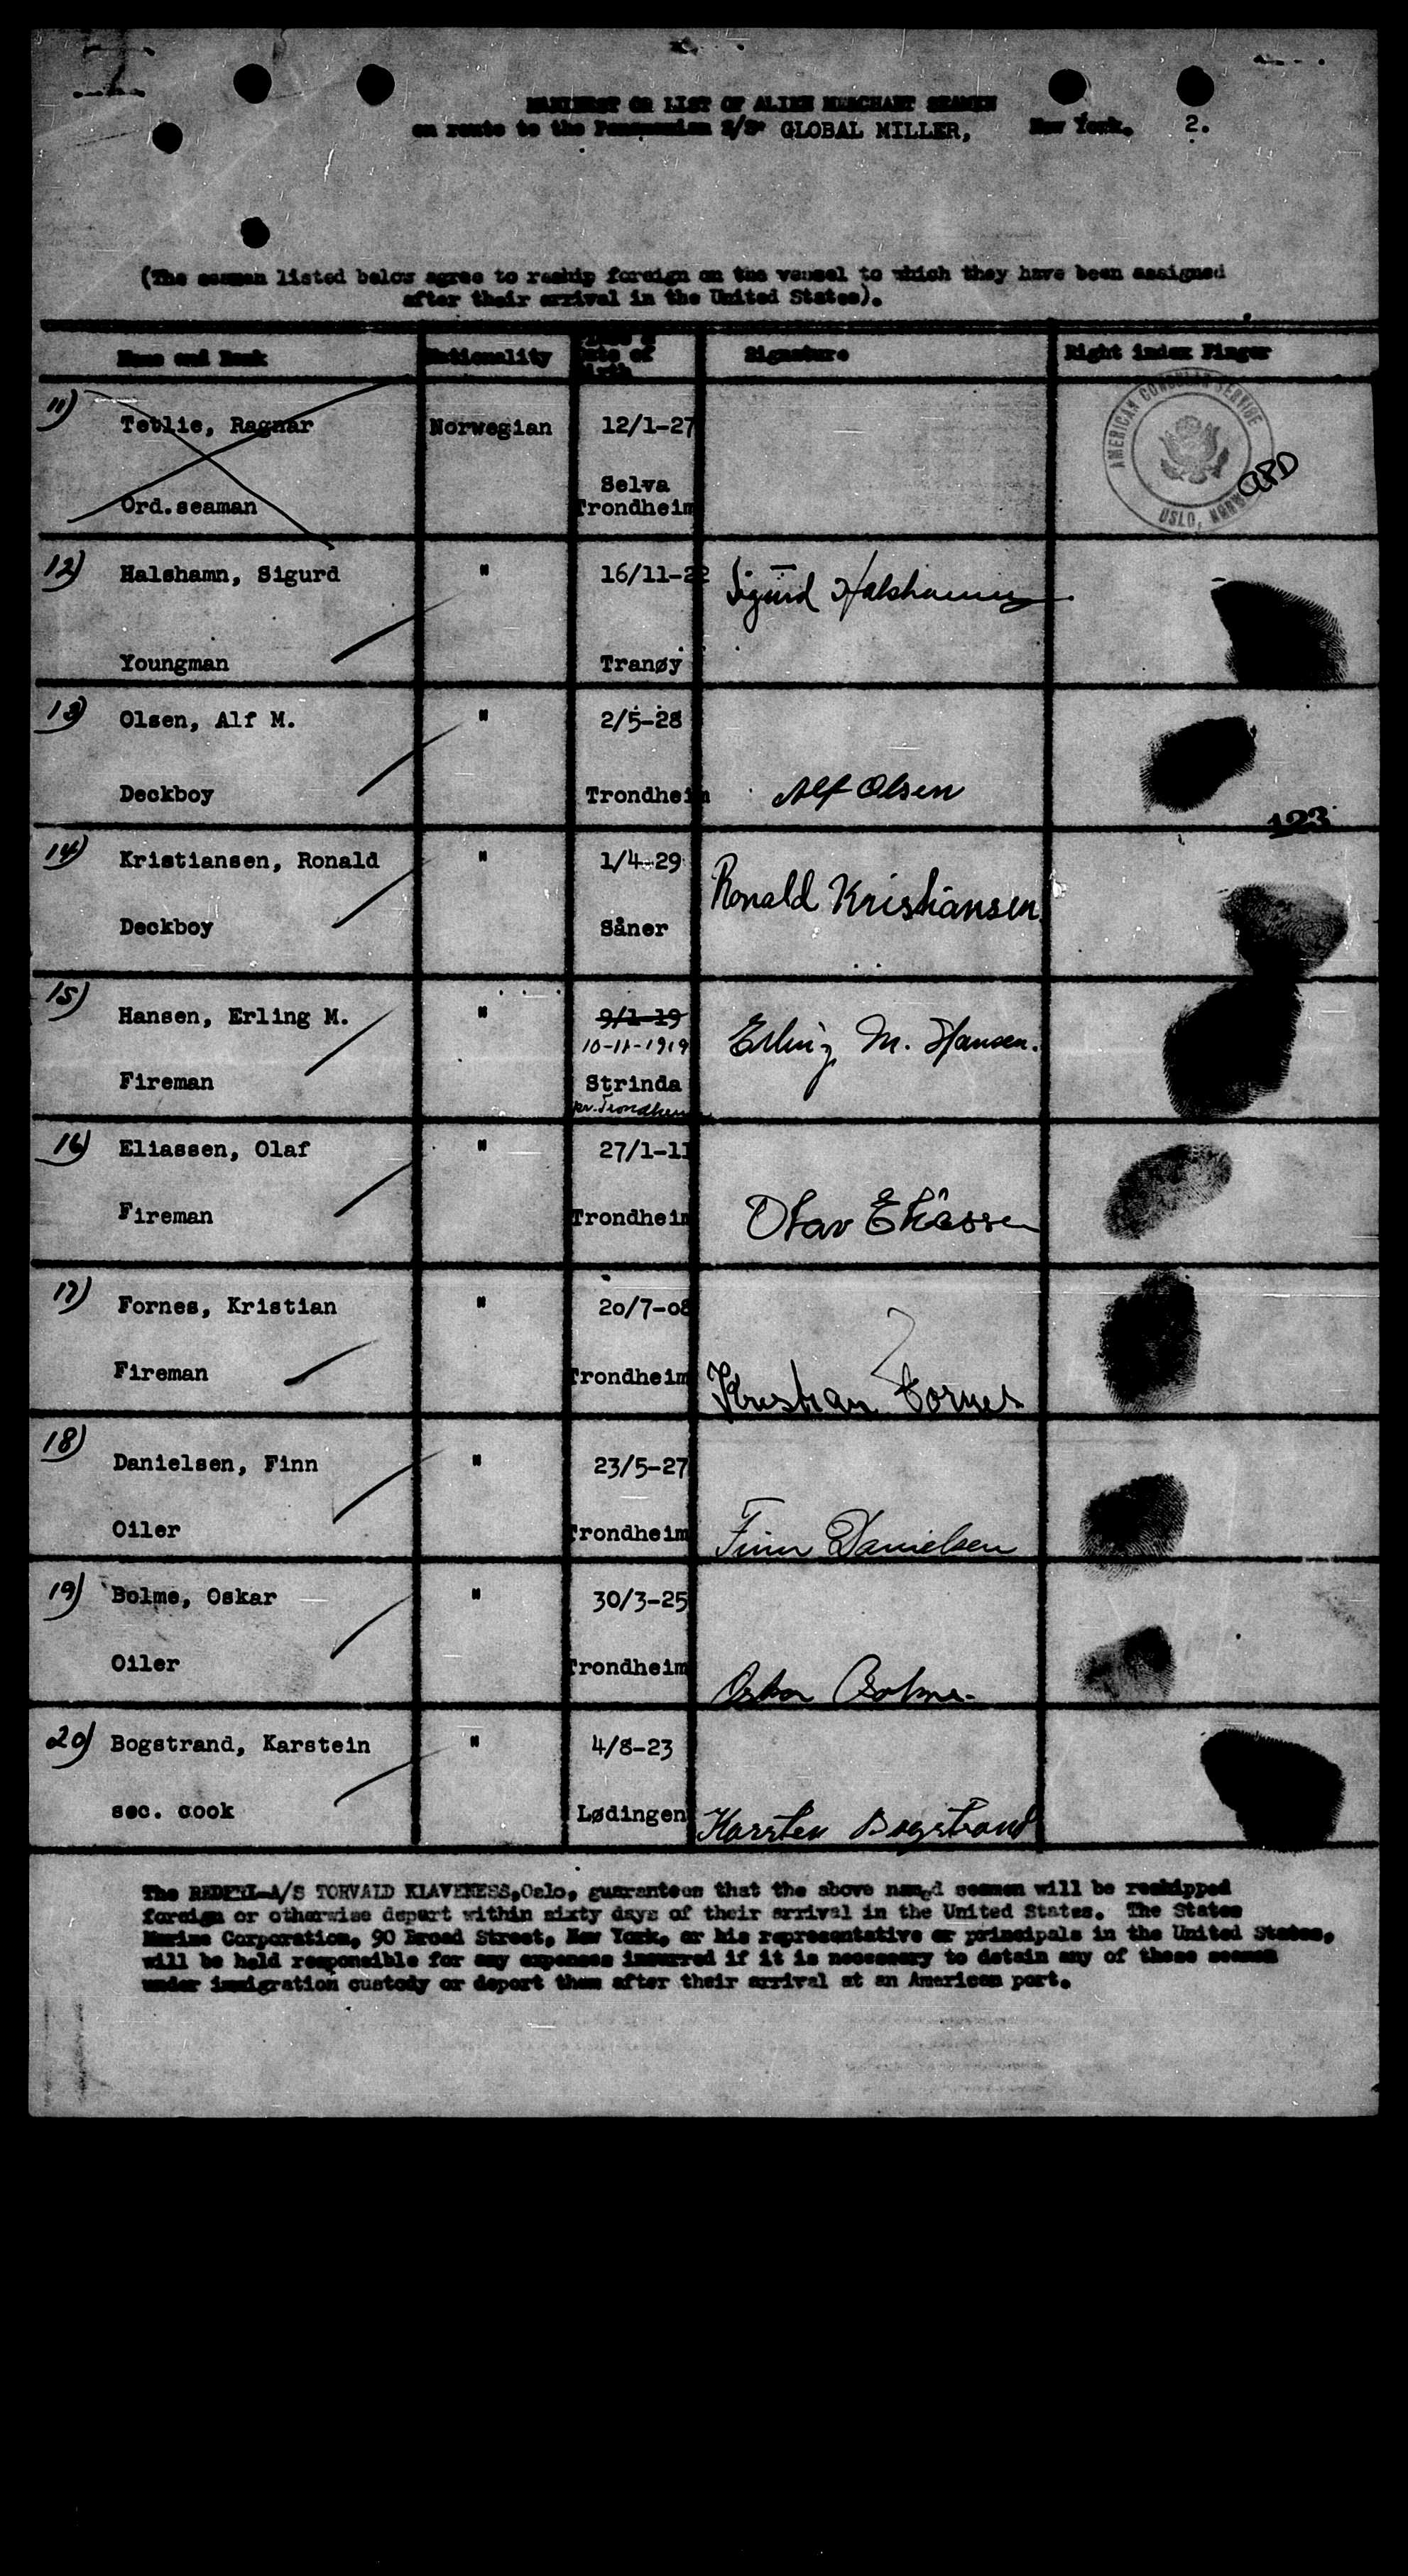 MANIFEST OR LIST OF ALIEN MERCHANT SEAMEN
en route to the Panamanian S/S* GLOBAL MILLER, New York. 2.
(The seamen listed below agree to reship foreign on the vessel to which they have been assigned
after their arrival in the United States).
Name and Rank Nationality Place & Date of Birth Signature Right index Finger
11) Tetlie, Ragnar Norwegian 12/1-27
Ord.seaman Selva Trondheim
AMERICAN CONSULAR SERVICE
OSLO, NORWAY
12) Halshamn, Sigurd " 16/11-22 Sigurd Halshamn
Youngman Tranøy
13) Olsen, Alf M. " 2/5-28
Deckboy Trondheim Alf Olsen
123
14) Kristiansen, Ronald " 1/4-29 Ronald Kristiansen
Deckboy Såner
15) Hansen, Erling M. " 9/1-19
10-11-1919 Erling M. Hansen.
Fireman Strinda
pr. Trondheim
16) Eliassen, Olaf " 27/1-11
Fireman Trondheim Olav Eliassen
17) Fornes, Kristian " 20/7-08
Fireman Trondheim Kristian Fornes
18) Danielsen, Finn " 23/5-27
Oiler Trondheim Finn Danielsen
19) Bolme, Oskar " 30/3-25
Oiler Trondheim Oskar Bolme.
20) Bogstrand, Karstein " 4/8-23
sec. cook Lødingen Karsten Bogstrand
The REDERI-A/S TORVALD KLAVENESS,Oslo, guarantees that the above named seamen will be reshipped
foreign or otherwise depart within sixty days of their arrival in the United States. The States
Marine Corporation, 90 Broad Street, New York, or his representative or principals in the United States,
will be held responsible for any expenses incurred if it is necessary to detain any of these seamen
under immigration custody or deport them after their arrival at an American port.